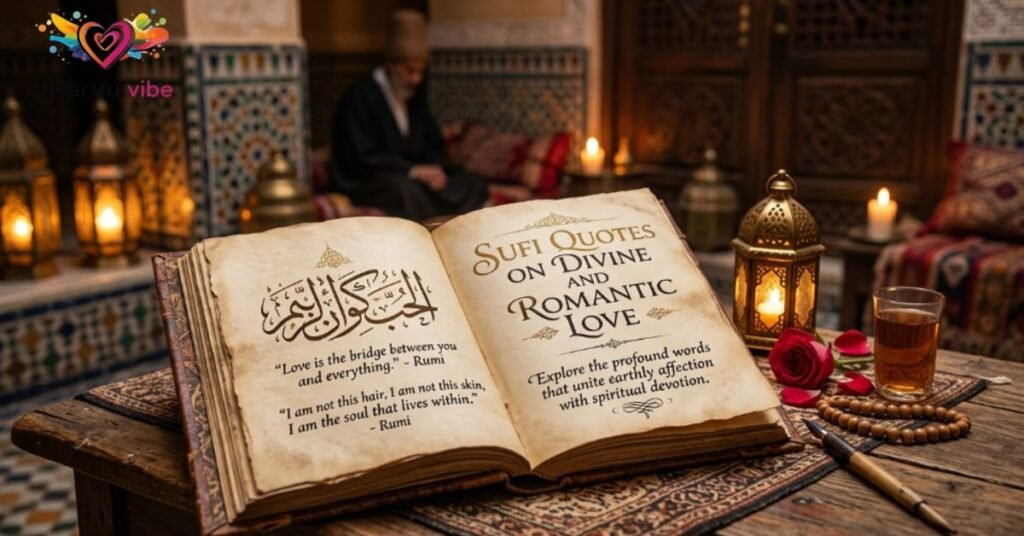 heartful vibe
الحب
“Love is the bridge between you
and everything.” - Rumi
“I am not this hair, I am not this skin,
I am the soul that lives within.”
- Rumi
SUFI QUOTES
ON DIVINE
AND
ROMANTIC
LOVE
Explore the profound words
that unite earthly affection
with spiritual devotion.